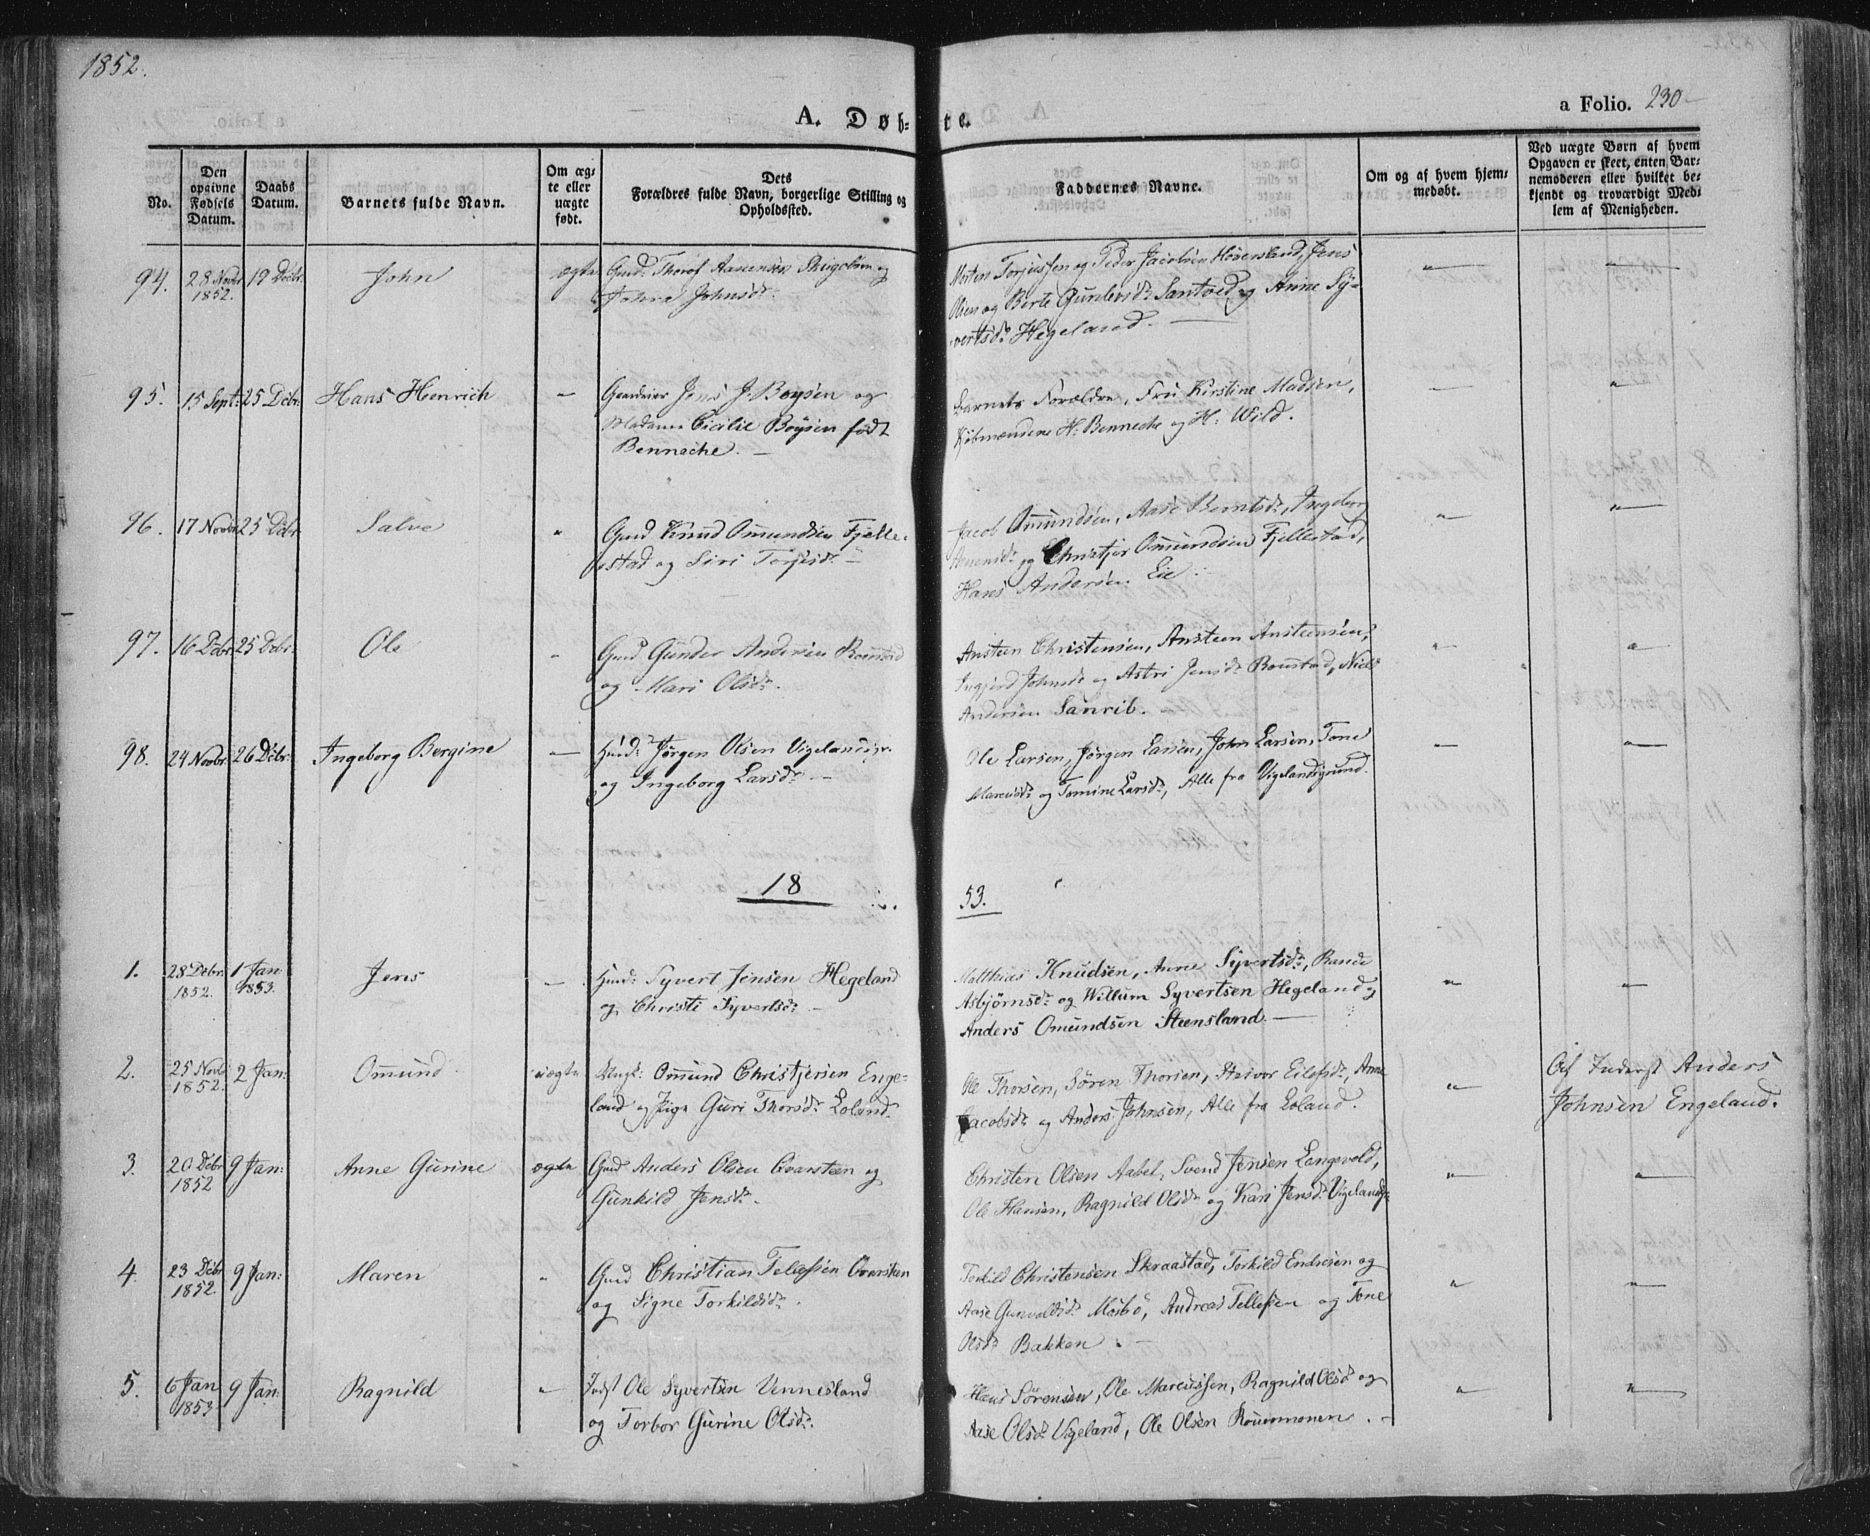 1852.
A. Døbte.
a Folio. 230
No.
Den opgivne Fødsels Datum.
Daabs Datum.
Barnets fulde Navn.
Om ægte eller uægte født.
Dets Forældres fulde Navn, borgerlige Stilling og Opholdssted.
Faddernes Navne.
Om og af hvem hjemmedøbt.
Ved uægte Børn af hvem Opgaven er skeet, enten Barnemoderen eller hvilket bekjendt og troværdigt Medlem af Menigheden.
94. 28 Novbr 1852. 19 Debr. John ægte Gmd. Aanensen og
Johnsdr.
Morten Torjussen og Peder Jacobsen Høversland, Jens
Olsen og Berte Gundersdr. Santved og Anne Sy-
vertsdr. Hegeland. — " "
95. 15 Sept: 25 Debr. Hans Henrich — Jens J. Boysen og
Madame Cicilie Boysen født
Benneche. —
Barnets Forældre, Fru Kirstine Madsen,
Kjøbmændene H. Benneche og H. Wild. — "
96. 17 Novbr 25 Debr. Salve " Gmd Knud Omundsen Fjelle-
stad og Siri Torjusdr. —
Jacob Omundsen, Aase Berntsdr., Ingeborg
Aanensdr. og Christjer Omundsen Fjellestad,
Hans Andersen Eie. " "
97. 16 Debr. 25 Debr. Ole " Gmd Gunder Andersen Roustad
og Mari Olsdr.
Ansteen Christensen, Ansteen Ansteensen,
Ingjerd Johnsdr og Astri Jensdr Roustad, Niels
Andersen Sanrib. " "
98. 24 Novbr. 26 Debr: Ingeborg Bergine — Hmd: Jörgen Olsen Vigelandsgr.
og Ingeborg Larsdr. —
Ole Larsen, Jørgen Larsen, John Larsen, Tone
Marcusdr. og Tomine Larsdr., Alle fra Vigelandsgrund. — "
18 53.
1. 28 Debr. 1852. 1 Jan: 1853. Jens — Hmd: Syvert Jensen Hegeland
og Christi Syvertsdr. —
Matthias Knudsen, Anne Syvertsdr., Rande
Asbjørnsdr. og Willum Syvertsen Hegeland og
Anders Omundsen Steensland. — " "
2. 25 Novbr 1852. 2 Jan: Omund uægte Ungk: Omund Christjersen Enge-
land og Pige Guri Thorsdr. Loland.
Ole Thorsen, Sören Thorsen, Steivor Eilefsdr., Anne
Jacobsdr og Anders Johnsen, Alle fra Loland. "
Af Inderst Anders
Johnsen Engeland.
3. 20 Debr 1852 9 Jan: Anne Gurine ægte Gmd Anders Olsen Qvarsteen og
Gunhild Jensdr.
Christen Olsen Aabel, Svend Jensen Langevold,
Ole Hansen, Ragnild Olsdr og Kari Jensdr. Vigeland. " "
4. 23 Debr 1852. 9 Jan: Maren " Gmd Christian Tellefsen Qvarsteen
og Signe Torkildsdr.
Torkild Christensen Skraastad, Torkild Endresen og
Aase Gunvaldsdr. Mosbø, Andreas Tellefsen og Tone
Olsdr Bakken. — " "
5. 6 Jan 1853 9 Jan: Ragnild " Indst Ole Syvertsen Vennesland
og Torbor Gurine Olsdr.
Hans Sörensen, Ole Marcussen, Ragnild Olsdr og
Aase Olsdr Vigeland, Ole Olsen — " "